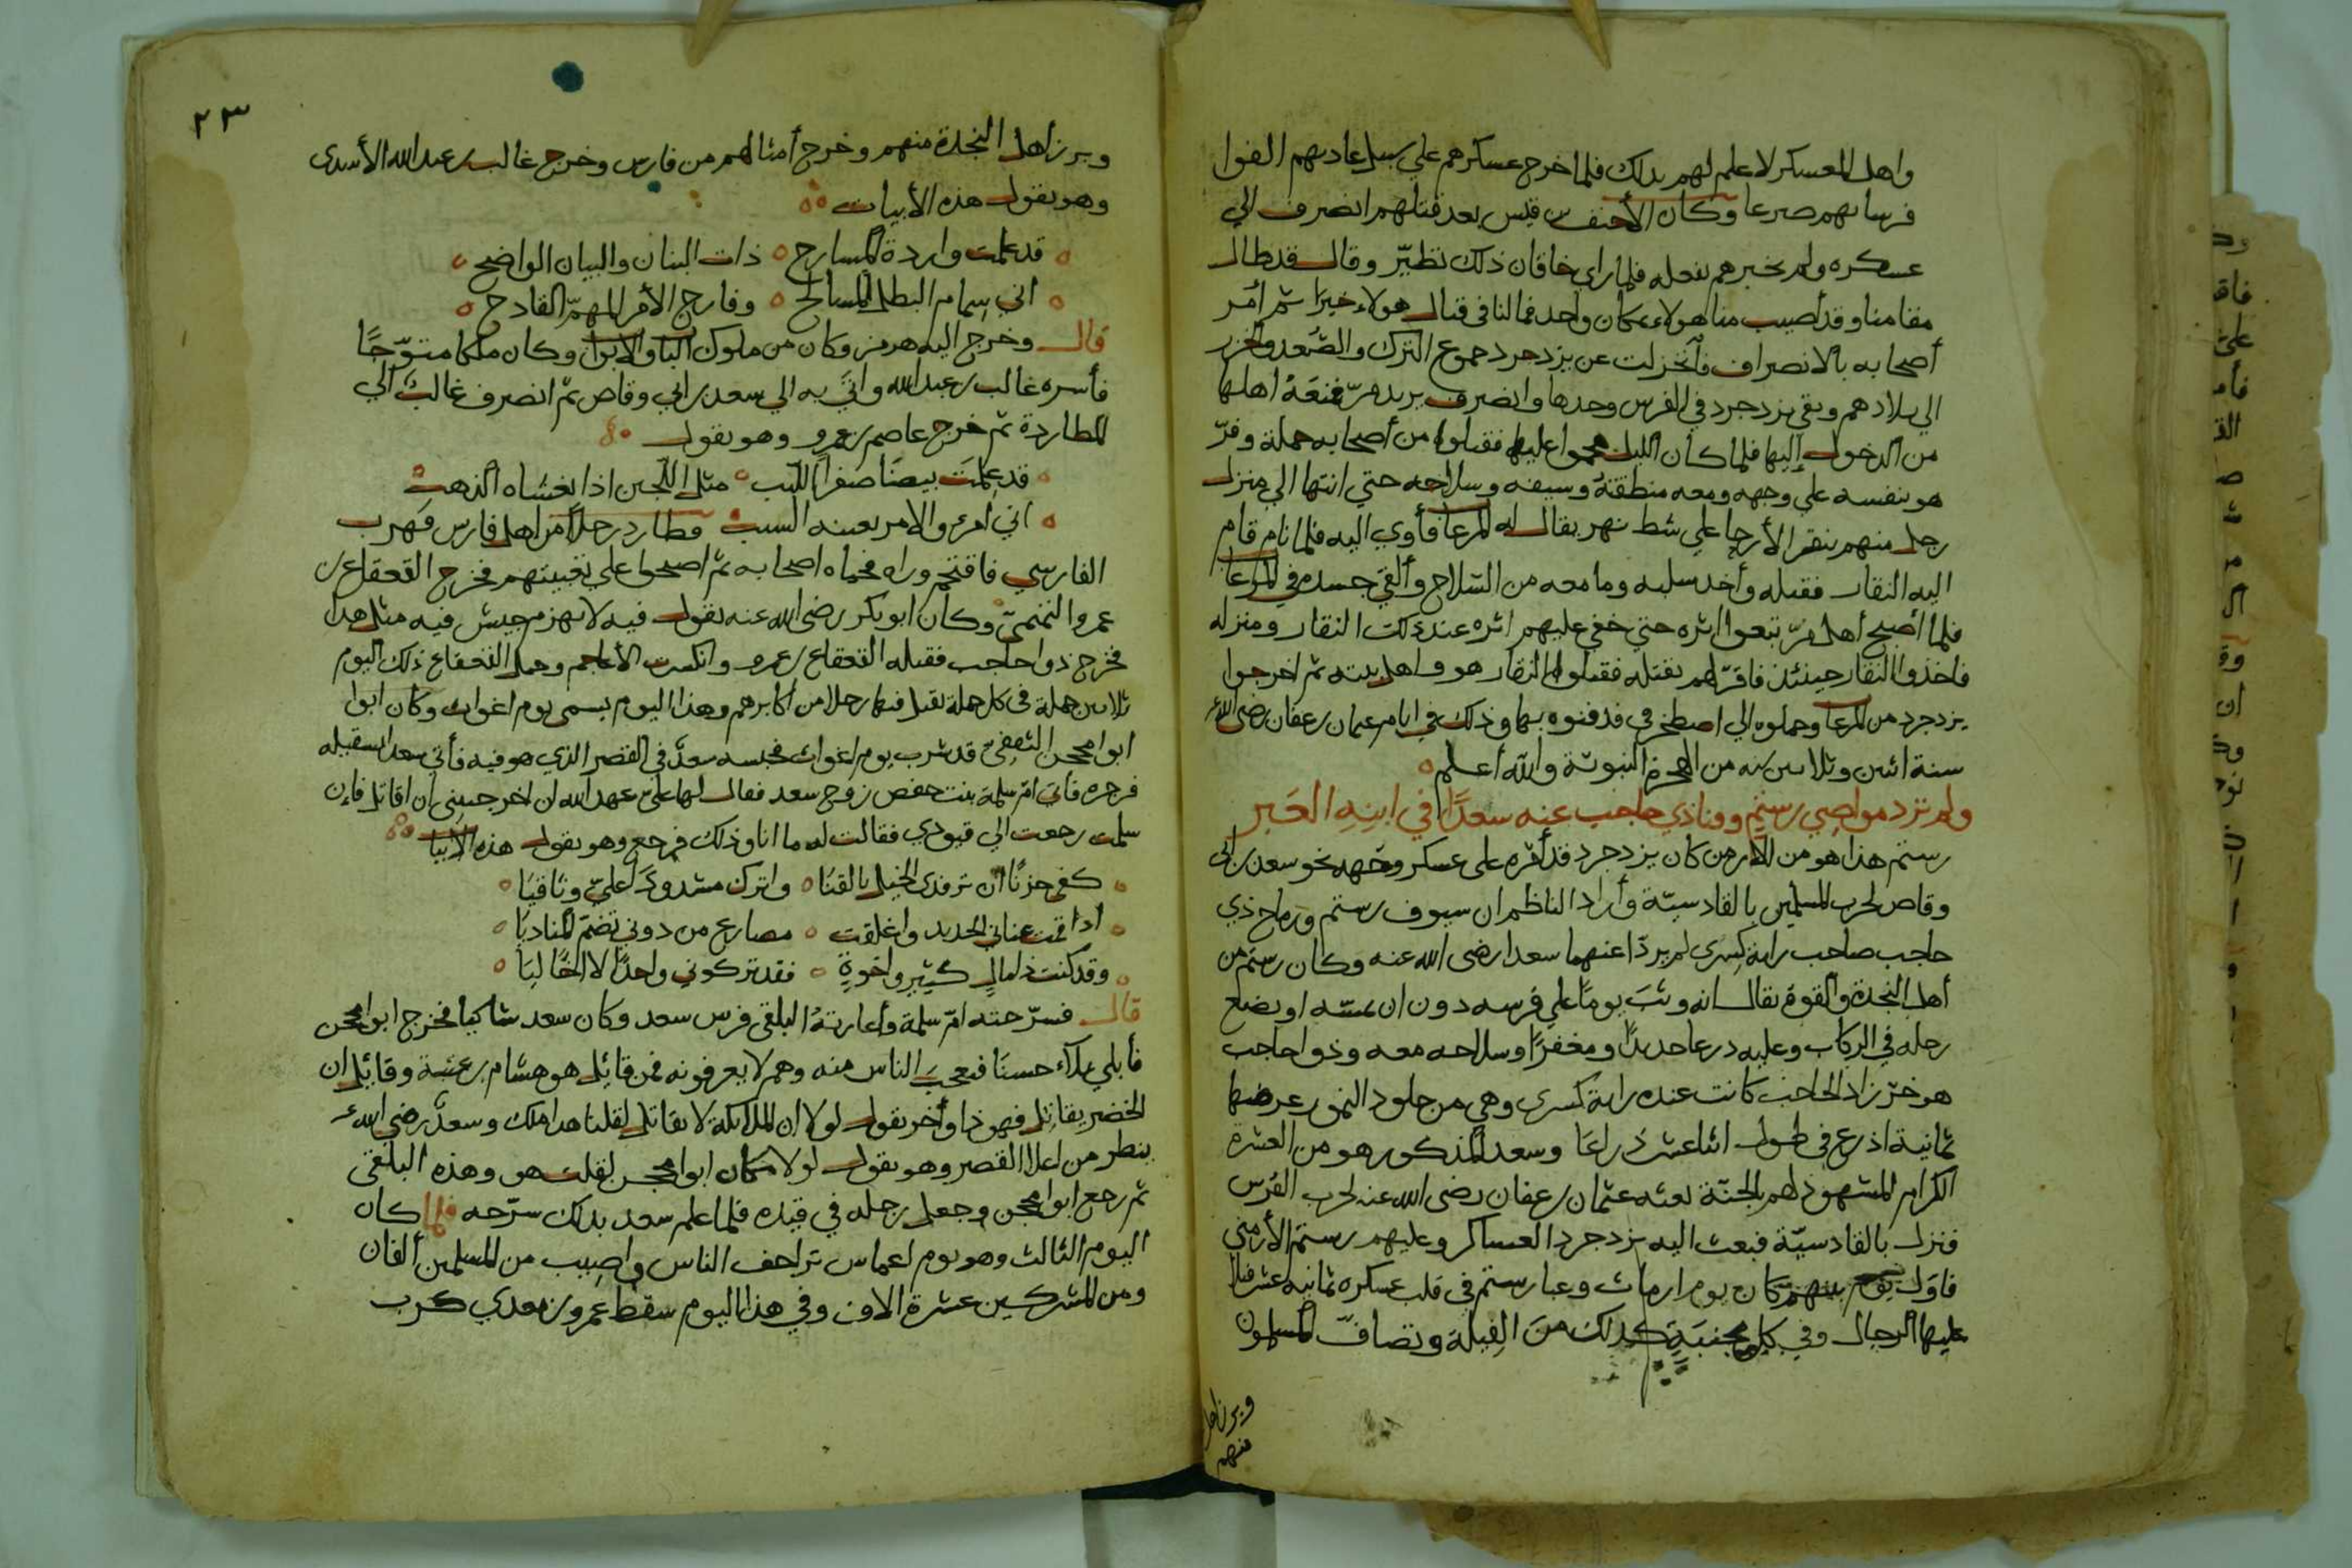 واهل المعسكر لا علم لهم بذلك فلما خرج عسكرهم علي سبيل عادتهم الفوا
فرسانهم صرعا وكان الأحنف بن قيس بعد قتلهم انصرف الي
عسكره ولم يخبرهم بفعله فلما راي خاقان ذلك تطيّر وقال قد طال
مقامنا وقد أصيب منا هولاء بمكان واحد فمالنا في قتال هولاء خيرًا ثم أمر
أصحابه بالانصراف فانخزلت عن يزدجرد جموع الترك والصُغد والخزر
الي بلادهم وبقي يزدجرد في الفرس وحدها وانصرف يريد مرّ فمنعَهُ اهلها
من الدخول إليها فلما كان الليل هجموا عليها فقتلوا من أصحابه جملة وفرّ
هو بنفسه علي وجهه ومعه منطقته وسيفه وسلاحه حتي انتها الي منزل
رجل منهم ينقر الأرحا علي شط نهر يقال له المرعا فأوي اليه فلما نام قام
اليه النقار فقتله وأخد سلبه وما معه من السّلاح وألقى جسده في المرعا
فلما أصبح أهل مرّ تبعوا اثره حتي خفي عليهم اثره عند ذلك النقار ومنزله
فاخذوا النقار حينئذ فاقرّ لهم بقتله فقتلوا النقار هو واهل بيته ثم اخرجوا
يزدجرد من المرعا وحملوه الي اصطخر في فدفنوه بها وذلك في ايام عثمان بن عفان رضى الله
سنة اثنين وثلاثين سنه من الهجرة النبوية والله أعلم
ولم ترد مواضي رستم وقنا ذي حاجب عنه سعدًا في ابنِهِ الخَبر
رستم هذا هو من الأرمن كان يزدجرد قد أمّره على عسكر وجّهه نحو سعد بن ابي
وقاص لحرب المسلمين بالقادسيّة وأراد الناظم ان سيوف رستم ورماح ذي
حاجب صاحب راية كسرى لم يردّا عنهما سعدا رضى الله عنه وكان رستم من
أهل النجدة والقوة يقال انه وثبَ يومًا علي فرسه دون ان يمسّه او يضع
رجله في الركاب وعليه درعا حديدًا ومغفرًا وسلاحه معه وذوا حاجب
هو خرّ زاد الحاجب كانت عنده راية كسرى وهي من جلود النمور عرضها
ثمانية اذرع في طول اثنا عشر ذراعًا وسعد المذكور هو من العشرة
الكرام المشهود لهم بالجنّة بعثه عثمان بن عفان رضى الله عنه لحرب الفرس
فنزل بالقادسيّة فبعث اليه يزدجرد العساكر وعليهم رستم الأرمني
فأوّل يوم بينهم كان يوم ارماث وعبا رستم في قلب عسكره ثمانيه عشر فيلا
عليها الرجال وفي كل مجنبَةٍ كذلك من الفيلة وتصافّ المسلمون
وبرز اهل
منهم
٢٣
وبرز اهل النجدة منهم وخرج أمثالهم من فارس وخرج غالب بن عبد الله الأسدى
وهو يقول هذه الأبيات
قد علمت واردة المسارح ذات البنان والبيان الواضح
اني سمام البطل المسالح وفارج الأمر المهمّ القادح
قال وخرج اليه هرمز وكان من ملوك الباب والابواب وكان ملكا متوّجًا
فأسره غالب بن عبد الله واتي به الي سعد بن ابي وقاص ثم انصرف غالبٌ الي
المطاردة ثم خرج عاصم بن عمرو وهو يقول
قد علمَت بيضَا صفرا اللبب مثل اللجين اذا يغشاه الذهب
اني امرئ والامر بعينه السبب فطارد رجلاً من اهل فارس فهرب
الفارسي فاقتحم وراه فحماه اصحابه ثم اصبحوا علي تعبيتهم فخرج القعقاع بن
عمرو التميمىّ وكان ابو بكر رضى الله عنه يقول فيه لا يهزم جيش فيه مثل هذا
فخرج ذوا حاجب فقتله القعقاع بن عمرو وانكسرت الأعاجم وحمل القعقاع ذلك اليوم
ثلاثين حملة في كل حملة يقتل فيها رجلا من أكابرهم وهذا اليوم يسمى يوم اغواث وكان ابوا
ابوا محجن الثقفىّ قد شرب يوم اغواث فحبسه سعدٌ في القصر الذي هو فيه فأتي سعدا يستقيله
فزجره فاتى امّ سلمة بنت حفص زوج سعد فقال لها عليّ عهد الله ان اخرجتيني ان اقاتل فإن
سلمت رجعت الي قيودي فقالت له ما انا وذلك فرجع وهو يقول هذه الابيات
كفى حزنًا ان تردى الخيل بالقنَا واترك مشدودًا عليّ وثاقيَا
اذا قمت عناني الحديد واغلقت مصاريع من دوني تضمّ المناديَا
وقد كنت ذا مالٍ كثيرٍ واخوةٍ فقد تركوني واحدًا لا اخًا ليَا
قال فسرّحته امّ سلمة وأعارتهُ البلقي فرس سعد وكان سعد شاكيا فخرج ابو محجن
فأبلي بلآء حسنًا فعجبَ الناس منه وهم لا يعرفونه فمن قائِل هو هشام بن عتبة وقائِل ان
الخضر يقاتِل فهو ذا وأخر يقول لولا ان الملائكة لا يقاتل لقلنا هدا ملك وسعدٌ رضى الله
ينظر من اعلا القصر وهو يقول لولا مكان ابوا محجن لقلت هو وهذه البلقى
ثم رجع ابوا محجن وجعل رجله في قيده فلما علم سعد بذلك سرّحه فلما كان
اليوم الثالث وهو يوم اعماس تزاحف الناس وأصِيب من المسلمين ألفان
ومن المشركين عشرة الاف وفي هذا اليوم سقط عمرو بن معدي كرب